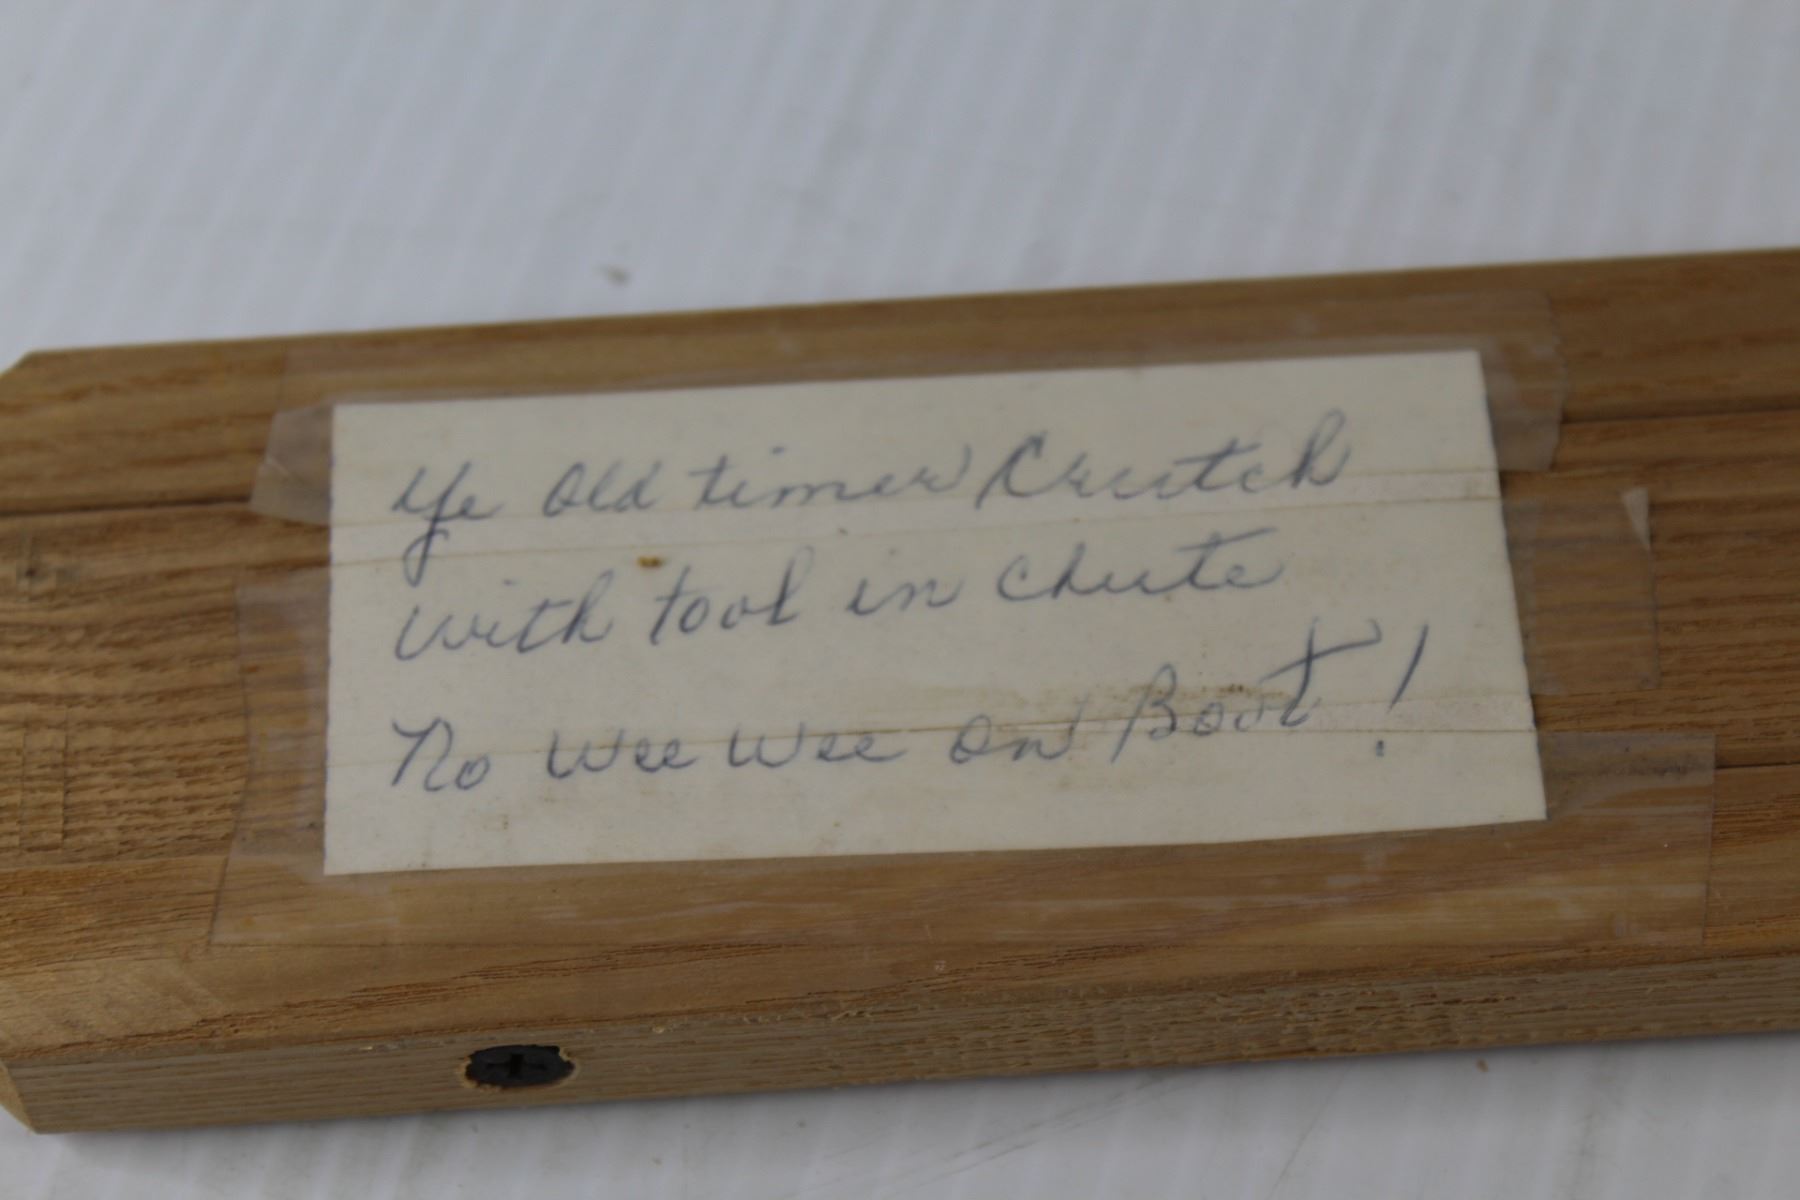 Ye Old timer Crutch
with tool in chute
No wee wee on Boot!